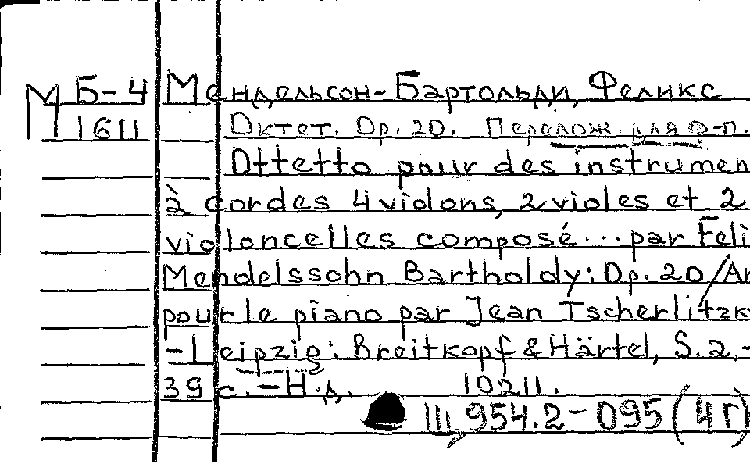 М Б-4 Мендельсон-Бартольди, Феликс
1611 Октет. Op. 20. Перелож. для ф-п.
Ottetto pour des instrumen
à cordes 4 violons, 2 violes et 2
violoncelles composé... par Feli
Mendelssohn Bartholdy: Op. 20/Ar
pour le piano par Jean Tscherlitzk
- Leipzig: Breitkopf & Härtel, S. 2,-
39 с. - Н.д. 10211.
Ш 954.2-095(4Г)